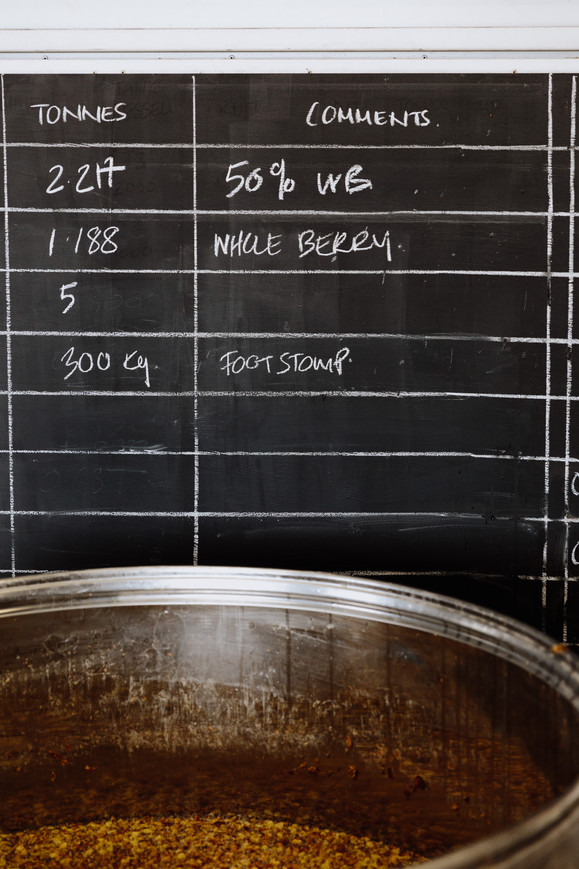 TONNES COMMENTS.
2.214 50% WB
1.188 WHOLE BERRY.
5
300 Kg. FOOT STOMP.